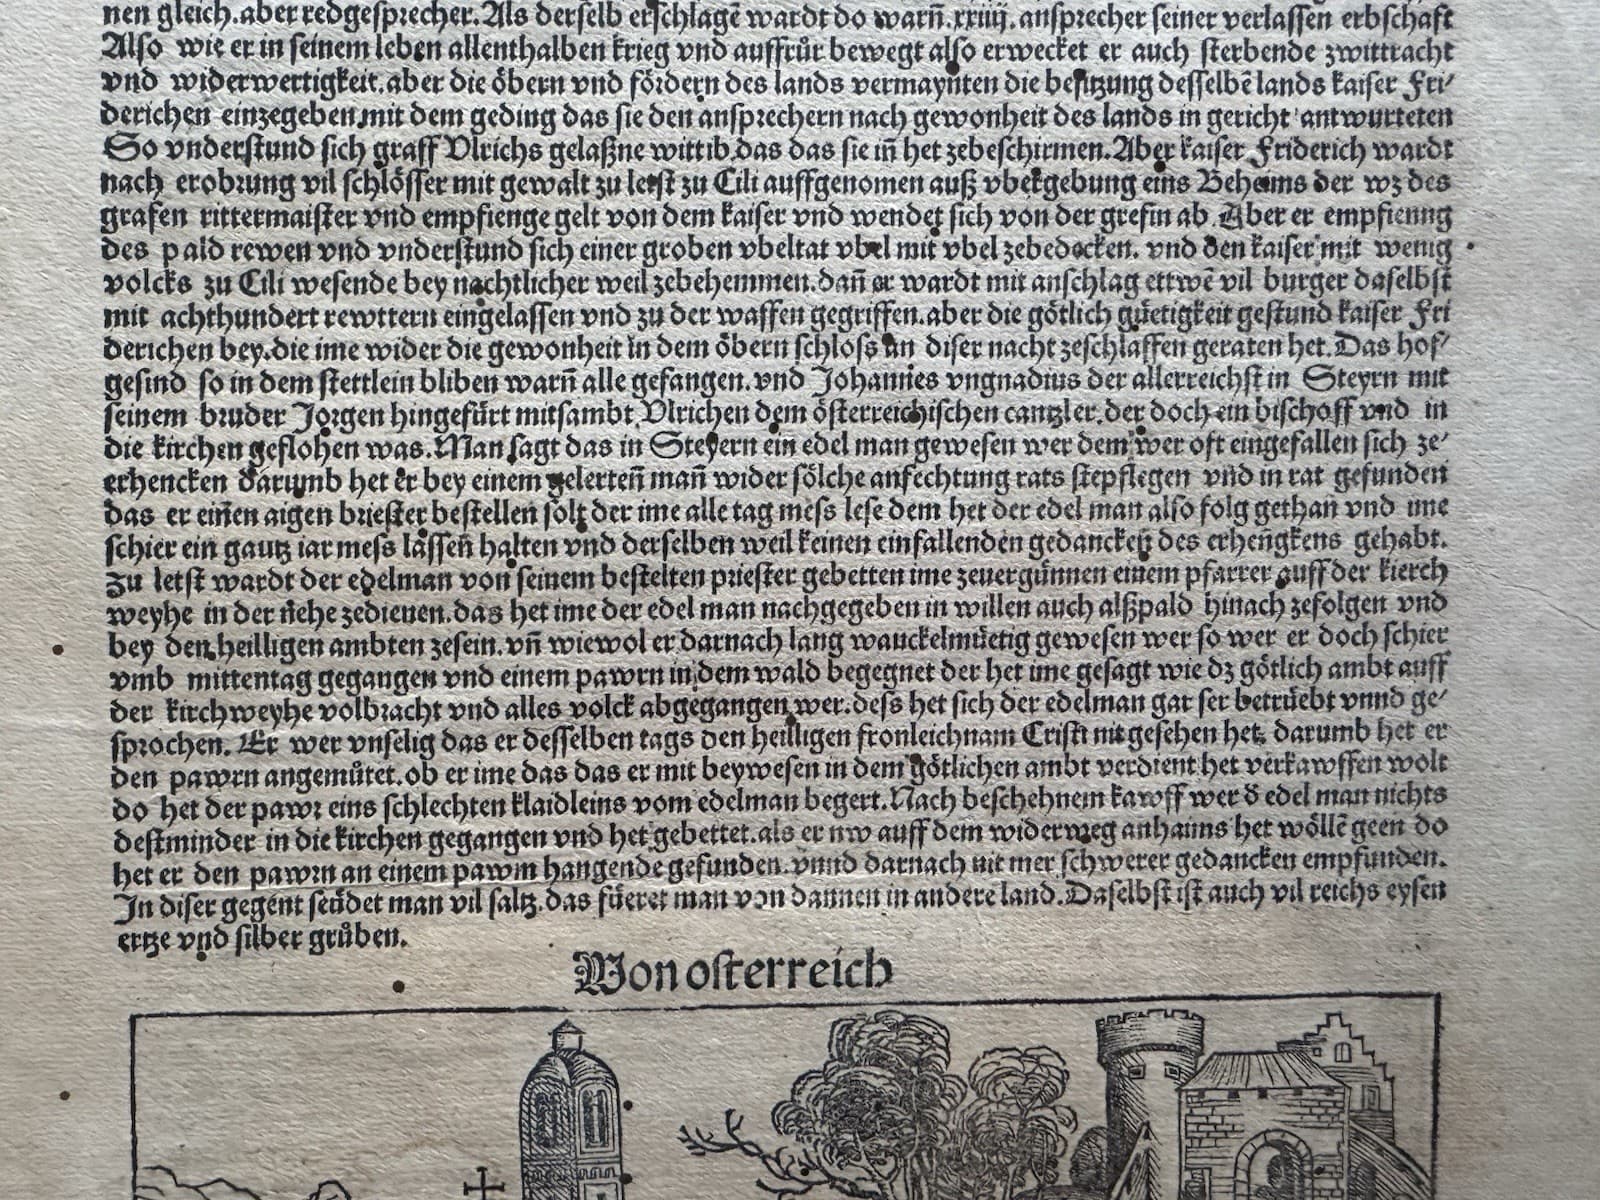 nen gleich.aber redgesprecher.Als derselb erschlagē wardt do warn̄.xxiiij.ansprecher seiner verlassen erbschafft
Also wie er in seinem leben allenthalben krieg vnd auffrůr bewegt also erwecket er auch sterbende zwittracht
vnd widerwertigkeit.aber die öbern vnd fördern des lands vermaynten die besitzung desselbē lands kaiser Fri/
derichen einzegeben.mit dem geding das sie den ansprechern nach gewonheit des lands in gericht antwurteten
So vnderstund sich graff Vlrichs gelaßne wittib.das das sie in̄ het zebeschirmen.Aber kaiser Friderich wardt
nach erobrung vil schlösser mit gewalt zu letst zu Cili auffgenomen auß vbergebung eins Behems der wz des
grafen rittermaister vnd empfienge gelt von dem kaiser vnd wendet sich von der grefin ab.Aber er empfienng
des pald rewen vnd vnderstund sich einer groben vbeltat vbel mit vbel zebedecken. vnd den kaiser mit wenig
volcks zu Cili wesende bey nachtlicher weil zebehemmen.dan̄ er wardt mit anschlag ettwē vil burger daselbst
mit achthundert rewttern eingelassen vnd zu der waffen gegriffen.aber die götlich gůetigkeit gestund kaiser Fri
derichen bey.die ime wider die gewonheit in dem öbern schloss an diser nacht zeschlaffen geraten het.Das hof/
gesind so in dem stettlein bliben warn̄ alle gefangen.vnd Johannes vngnadius der allerreichst in Steyrn mit
seinem bruder Jorgen hingefürt mitsambt Vlrichen dem österreichischen cantzler.der doch ein bischoff vnd in
die kirchen geflohen was.Man sagt das in Steyern ein edel man gewesen wer dem wer oft eingefallen sich ze/
erhencken darumb het er bey einem gelerten̄ man̄ wider sölche anfechtung rats stepflegen vnd in rat gefunden
das er einen aigen briester bestellen solt der ime alle tag mess lese dem het der edel man also folg gethan vnd ime
schier ein gantz iar mess lassen̄ halten vnd derselben weil keinen einfallenden gedancken des erhengkens gehabt.
Zu letst wardt der edelman von seinem bestelten priester gebetten ime zeuergünnen einem pfarrer auff der kierch
weyhe in der nehe zedienen.das het ime der edel man nachgegeben in willen auch alßpald hinach zefolgen vnd
bey den heilligen ambten zesein.vn̄ wiewol er darnach lang wanckelmüetig gewesen wer so wer er doch schier
vmb mittentag gegangen vnd einem pawrn in dem wald begegnet der het ime gesagt wie dz götlich ambt auff
der kirchweyhe volbracht vnd alles volck abgegangen wer.dess het sich der edelman gar ser betrüebt vnnd ge/
sprochen. Er wer vnselig das er desselben tags den heilligen fronleichnam Cristi nit gesehen het. darumb het er
den pawrn angemůtet.ob er ime das das er mit beywesen in dem götlichen ambt verdient het verkawffen wolt
do het der pawr eins schlechten klaidleins vom edelman begert.Nach beschehnem kawff wer d̄ edel man nichts
destminder in die kirchen gegangen vnd het gebettet.als er nw auff dem widerweg anhaims het wöllē geen do
het er den pawrn an einem pawm hangende gefunden. vnnd darnach nit mer schwerer gedancken empfunden.
In diser gegent seüdet man vil saltz.das füeret man von dannen in andere land.Daselbst ist auch vil reichs eysen
ertze vnd silber grůben.
Von osterreich